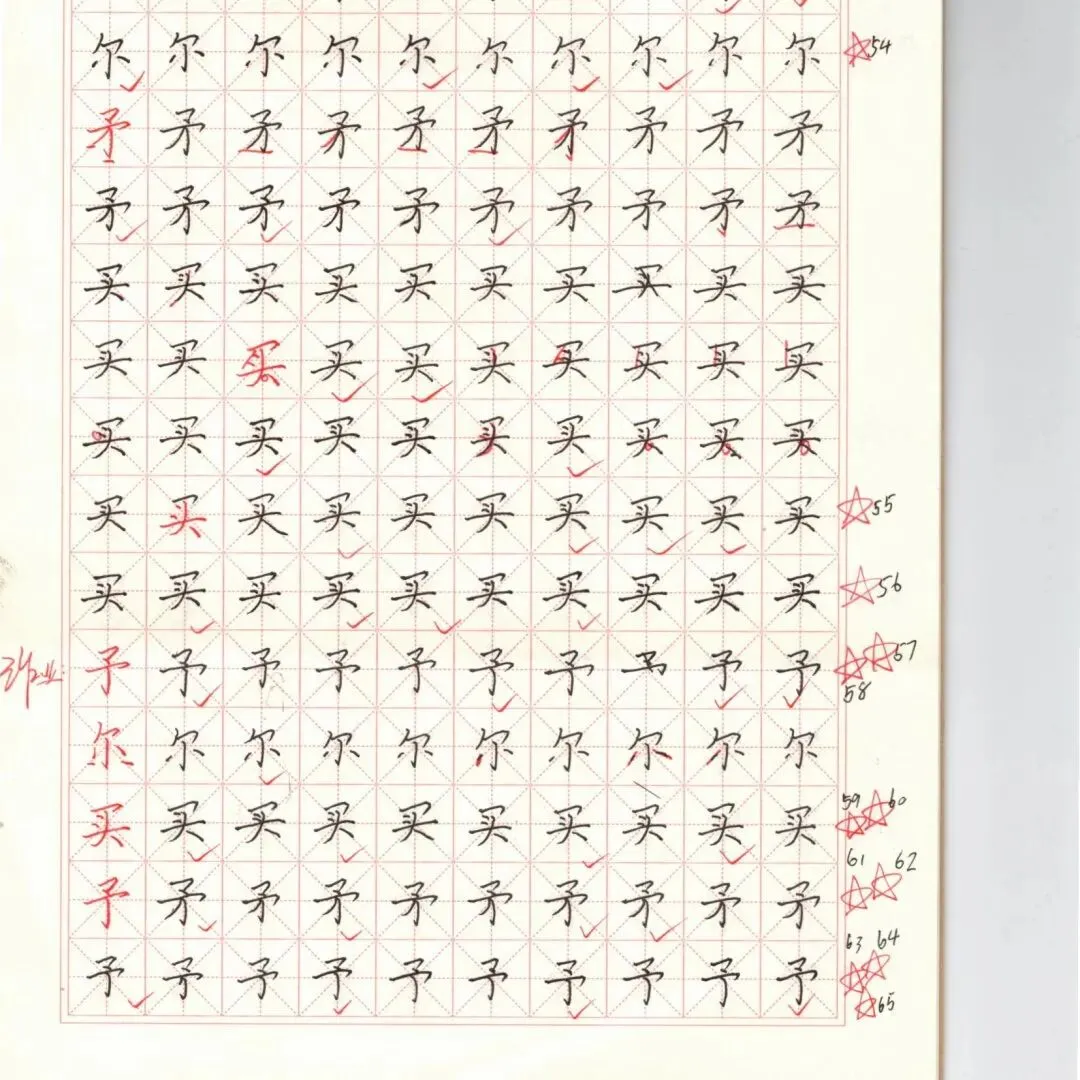 尔尔尔尔尔尔尔尔尔尔 54
矛矛矛矛矛矛矛矛矛矛
矛矛矛矛矛矛矛矛矛矛
买买买买买买买买买买
买买买买买买买买买买
买买买买买买买买买买
买买买买买买买买买买 55
买买买买买买买买买买 56
作业: 予予予予予予予予予 57
58
尔尔尔尔尔尔尔尔尔尔
买买买买买买买买买买 59 60
予矛矛矛矛矛矛矛矛矛 61 62
予予予予予予予予予予 63 64
65